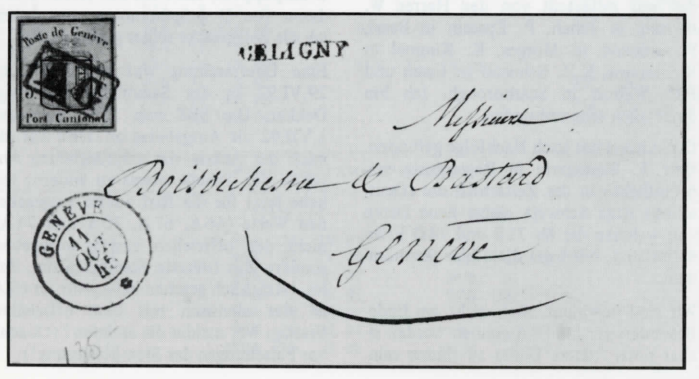 Poste de Genève
Port Cantonal
CELIGNY
Messieurs
Boisduchesne & Bastard
Genève
GENEVE
11
OCT
45
135